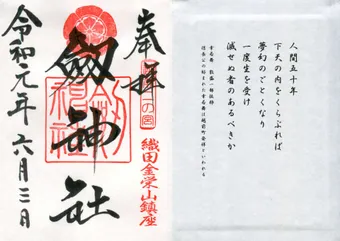 奉拝
織田金栄山鎮座
劔神社
令和元年六月三日
人間五十年
下天の内をくらぶれば
夢幻のごとくなり
一度生を受け
滅せぬ者のあるべきか
幸若舞 敦盛の一節抜粋